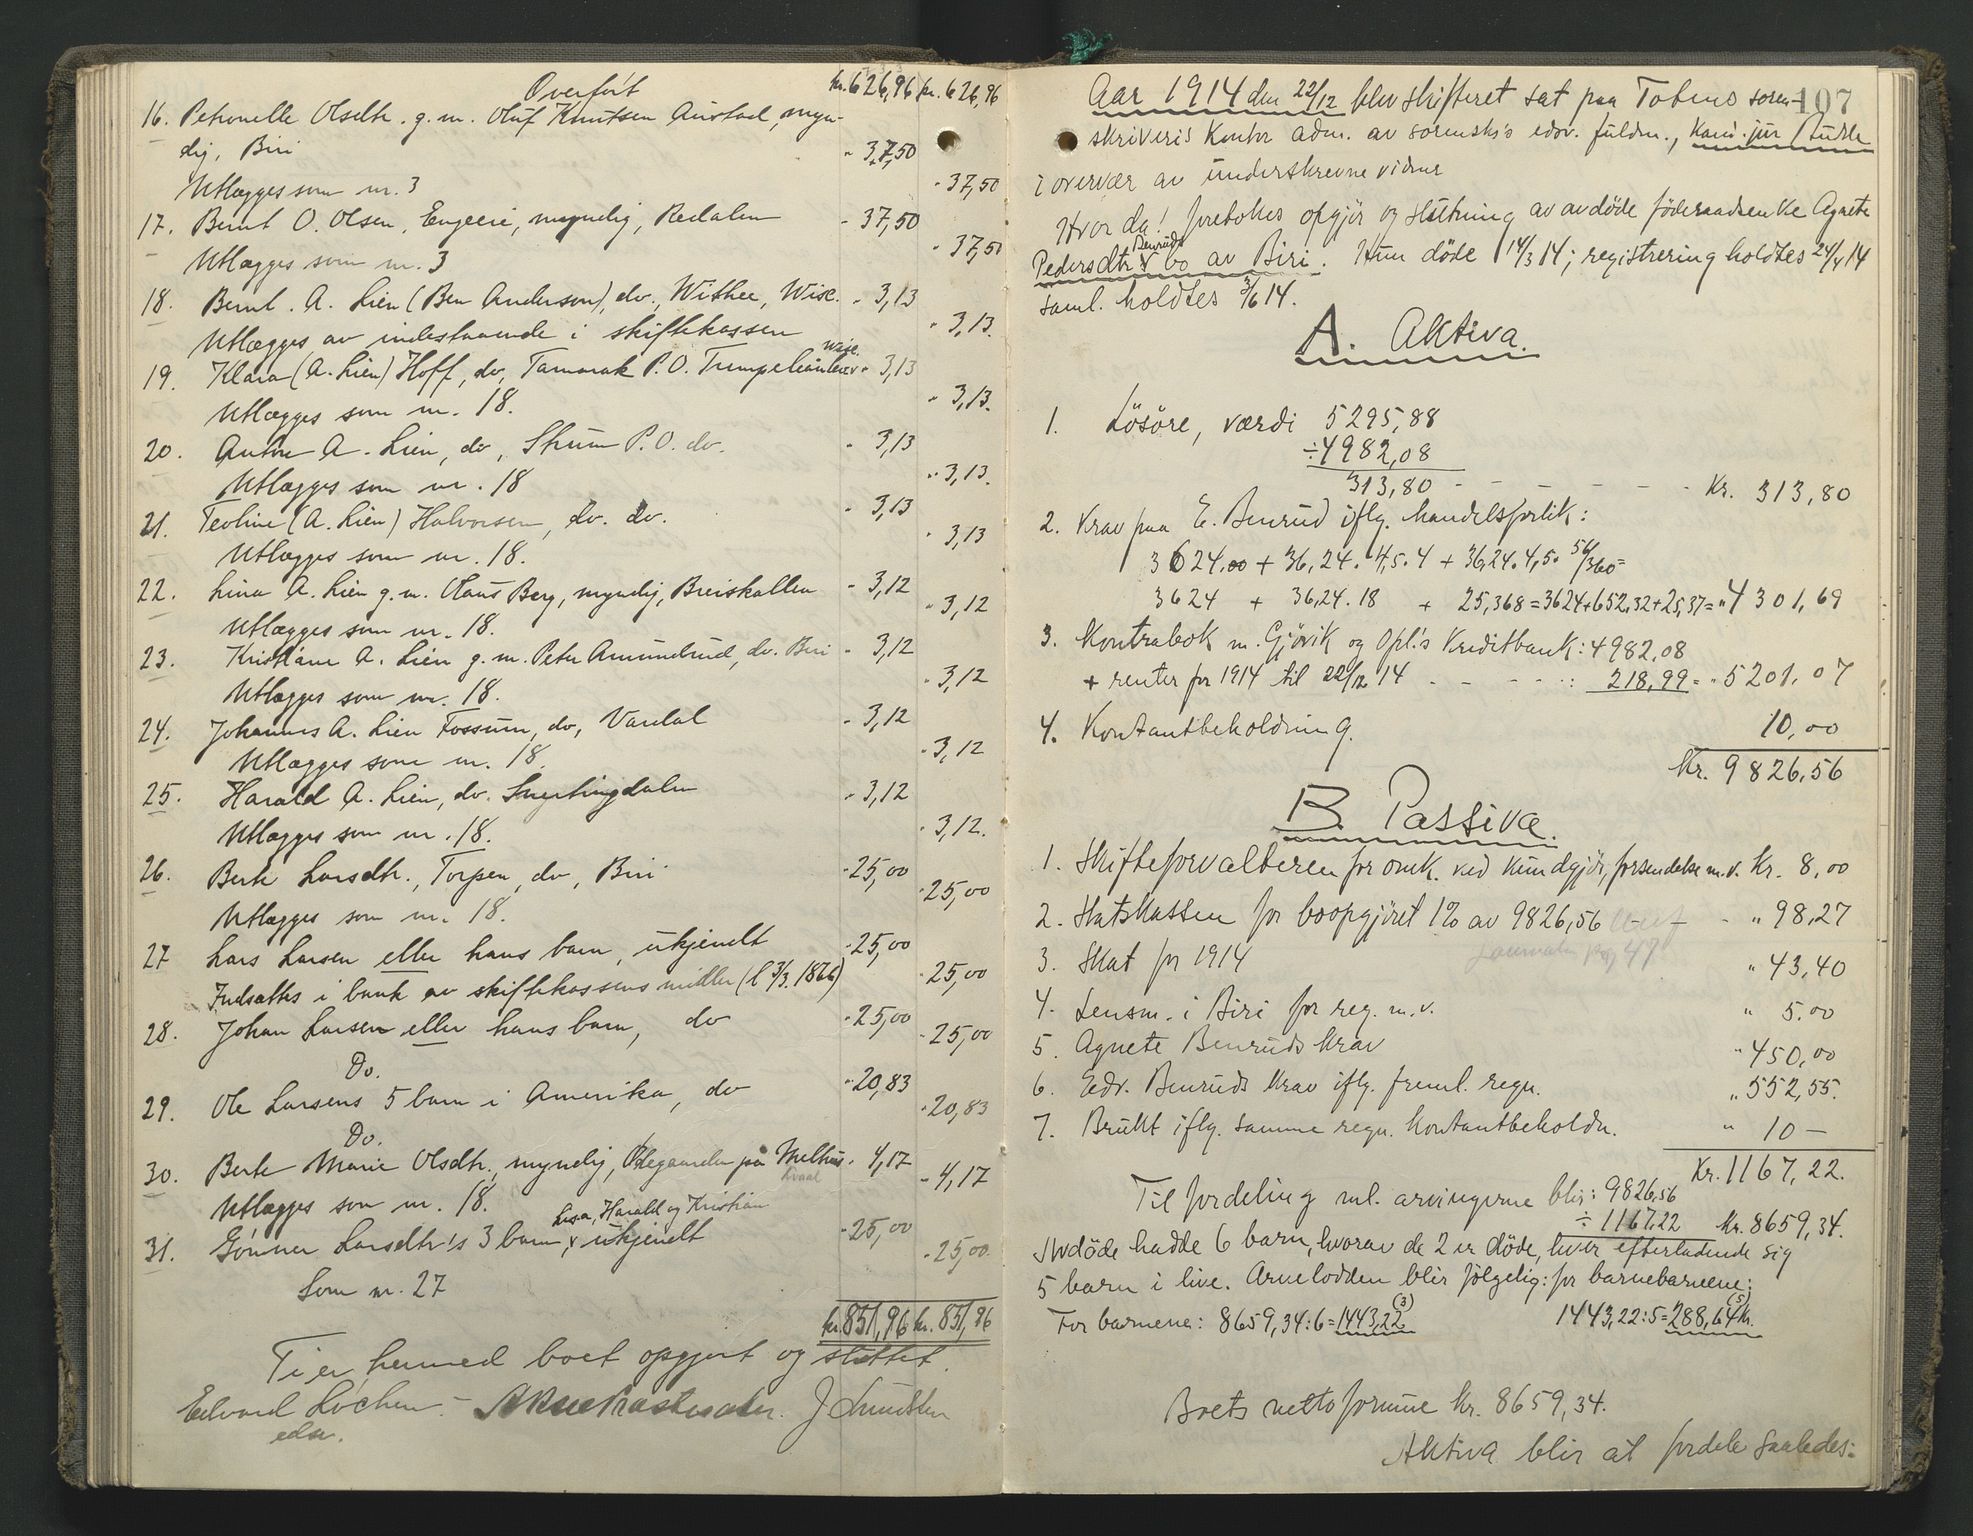 Overført kr. 626,96 kr. 626,96
16. Petronelle Olsdtr. g. m. Oluf Knutsen Austad, myn-
dig, Biri " 37,50
Utlægges som nr. 3 " 37,50
17. Bernt O. Olsen, Engeeie, myndig, Redalen " 37,50
Utlægges som nr. 3 " 37,50
18. Bernt. A. Lien (Ben Anderson), do., Withee, Wisc. " 3,13
Utlægges av indestaaende i skiftekassen " 3,13.
Wisc.
19. Klara (A. Lien) Hoff, do, Tamarak P.O. Trempeleau " 3,13
Utlægges som nr. 18. " 3,13.
20. Anton A. Lien, do, Strum P.O. do. " 3,13
Utlægges som nr. 18 " 3,13.
21. Teoline (A. Lien) Halvorsen, do. do. " 3,13
Utlægges som nr. 18. " 3,13
22. Lina A. Lien g. m. Olaus Berg, myndig, Breiskallen " 3,12
Utlægges som nr. 18. " 3,12
23. Kristiane A. Lien g. m. Peter Amundrud, do. Biri " 3,12
Utlægges som nr. 18. " 3,12
24. Johannes A. Lien Fossum, do, Vardal " 3,12
Utlægges som nr. 18. " 3,12
25. Harald A. Lien, do. Snertingdalen " 3,12
Utlægges som nr. 18. " 3,12.
26. Berte Larsdtr., Torpen, do, Biri " 25,00
Utlægges som nr. 18. " 25,00
27 Lars Larsen eller hans barn, ukjendt " 25,00
Indsættes i bank av skiftekassens midler (l 3/3. 1866) " 25,00
28. Johan Larsen eller hans barn, do " 25,00
Do. " 25,00
29. Ole Larsens 5 barn i Amerika, do " 20,83
Do. " 20,83
30. Berte Marie Olsdtr., myndig, på Melhus " 4,17
Utlægges som nr. 18. " 4,17
Lisa, Harald og Kristian
31. Gunner Larsdtr's 3 barn, ukjendt " 25,00
Som nr. 27 " 25,00
kr. 851,96 kr. 851,96
Ti er hermed boet opgjort og sluttet.
Edvard Løchen - J Lundsten
edsv.
107
Aar 1914 den 22/12 blev skifteret sat paa Totens soren-
skriveris kontor adm. av sorenskr's edsv. fuldm., kand. jur
i overvær av underskrevne vidner
Hvor da! foretokes opgjør og slutning av avdöde föderaadsenke Agnete
Benruds
Pedersdtr bo av Biri. Hun döde 14/3 14; registrering holdtes 24/4 14
saml. holdtes 3/6 14.
A. Aktiva.
1. Lösöre, værdi 5295,88
÷ 4982,08
313,80 - - - - - - Kr. 313,80
2. Krav paa E. Benrud iflg. handelsforlik:
3624.00 + 36,24. 4,5. 4 + 36,24. 4,5. 56/360 =
3624 + 36,24. 18 + 25,368 = 3624 + 652,32 + 25,37 = " 4301,69
3. Kontrabok m. Gjövik og Opl.'s Kreditbank: 4982,08
+ renter for 1914 til 22/12 14 - - - - : 218,99 = " 5201,07
4. Kontantbeholdning. 10,00
Kr. 9826,56
B. Passiva.
1. Skifteforvalteren for omk. ved kundgjör., forsendelse m.v. Kr. 8,00
2. Statskassen for boopgjöret 1% av 9826,56 - " 98,27
3. Skat for 1914 " 43,40
4. Lensm. i Biri for reg. m.v. " 5.00
5. Agnete Benruds krav " 450,00
6. Edv. Benruds krav iflg. freml. regn. " 552,55.
7. Brukt iflg. samme regn. kontantbeholdn. " 10 -
Kr. 1167,22.
Til fordeling ml. arvingerne blir: 9826,56
÷ 1167,22 Kr. 8659,34.
Avdöde hadde 6 barn, hvorav de 2 er döde, hver efterladende sig
5 barn i live. Arvelodden blir fölgelig: for barnebarnene:
For barnene: 8659,34:6 = 1443,22 (3) 1443,22:5 = 288,64 (5) kr.
Boets netto formue kr. 8659,34.
Aktiva blir at fordele saaledes: